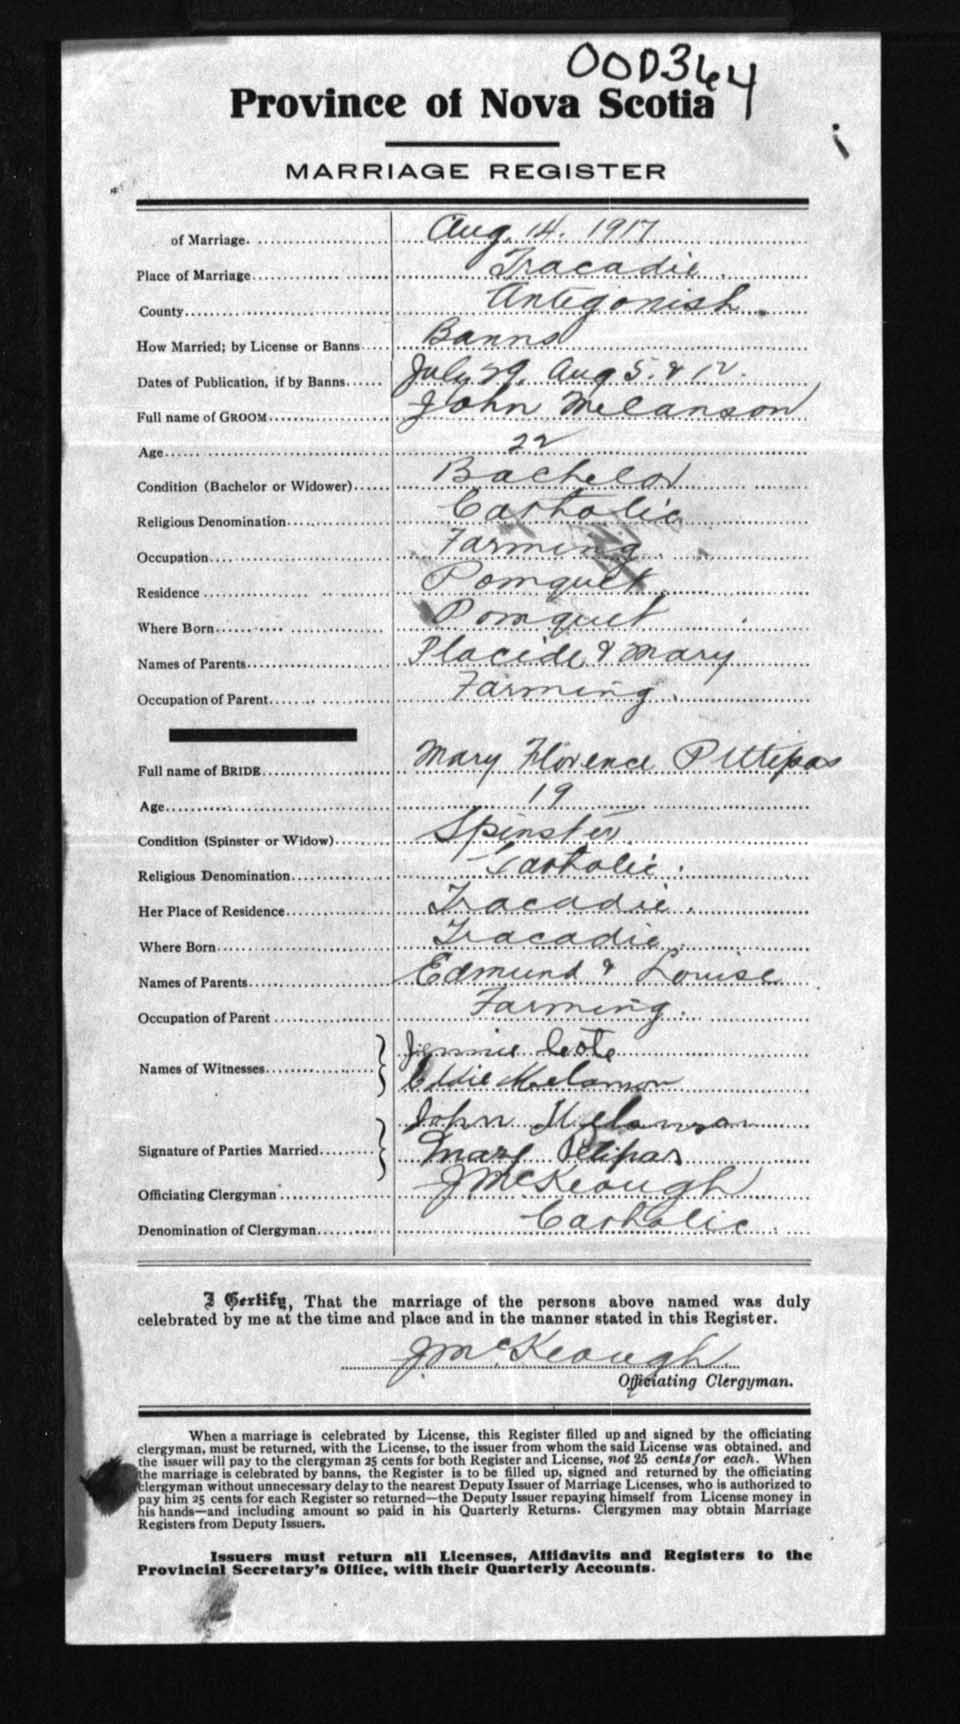 OOD364
Province of Nova Scotia
MARRIAGE REGISTER
of Marriage. Aug. 14. 1917
Place of Marriage Tracadie.
County Antigonish.
How Married; by License or Banns Banns
Dates of Publication, if by Banns July 29, Aug 5. & 12.
Full name of GROOM John Melanson
Age 22
Condition (Bachelor or Widower) Bachelor
Religious Denomination Catholic
Occupation Farming.
Residence Pomquet.
Where Born Pomquet
Names of Parents Placide & Mary
Occupation of Parent Farming.
Full name of BRIDE Mary Florence Pettipas
Age 19
Condition (Spinster or Widow) Spinster
Religious Denomination Catholic.
Her Place of Residence Tracadie.
Where Born Tracadie.
Names of Parents Edmund & Louise
Occupation of Parent Farming.
Jennie Cote
Names of Witnesses
Eddie Melanson
John Melanson
Signature of Parties Married Mary Petipas
Officiating Clergyman J McKeough
Denomination of Clergyman Catholic.
I Certify, That the marriage of the persons above named was duly
celebrated by me at the time and place and in the manner stated in this Register.
J. McKeough
Officiating Clergyman.
When a marriage is celebrated by License, this Register filled up and signed by the officiating
clergyman, must be returned, with the License, to the issuer from whom the said License was obtained, and
the issuer will pay to the clergyman 25 cents for both Register and License, not 25 cents for each. When
the marriage is celebrated by banns, the Register is to be filled up, signed and returned by the officiating
clergyman without unnecessary delay to the nearest Deputy Issuer of Marriage Licenses, who is authorized to
pay him 25 cents for each Register so returned—the Deputy Issuer repaying himself from License money in
his hands—and including amount so paid in his Quarterly Returns. Clergymen may obtain Marriage
Registers from Deputy Issuers.
Issuers must return all Licenses, Affidavits and Registers to the
Provincial Secretary's Office, with their Quarterly Accounts.